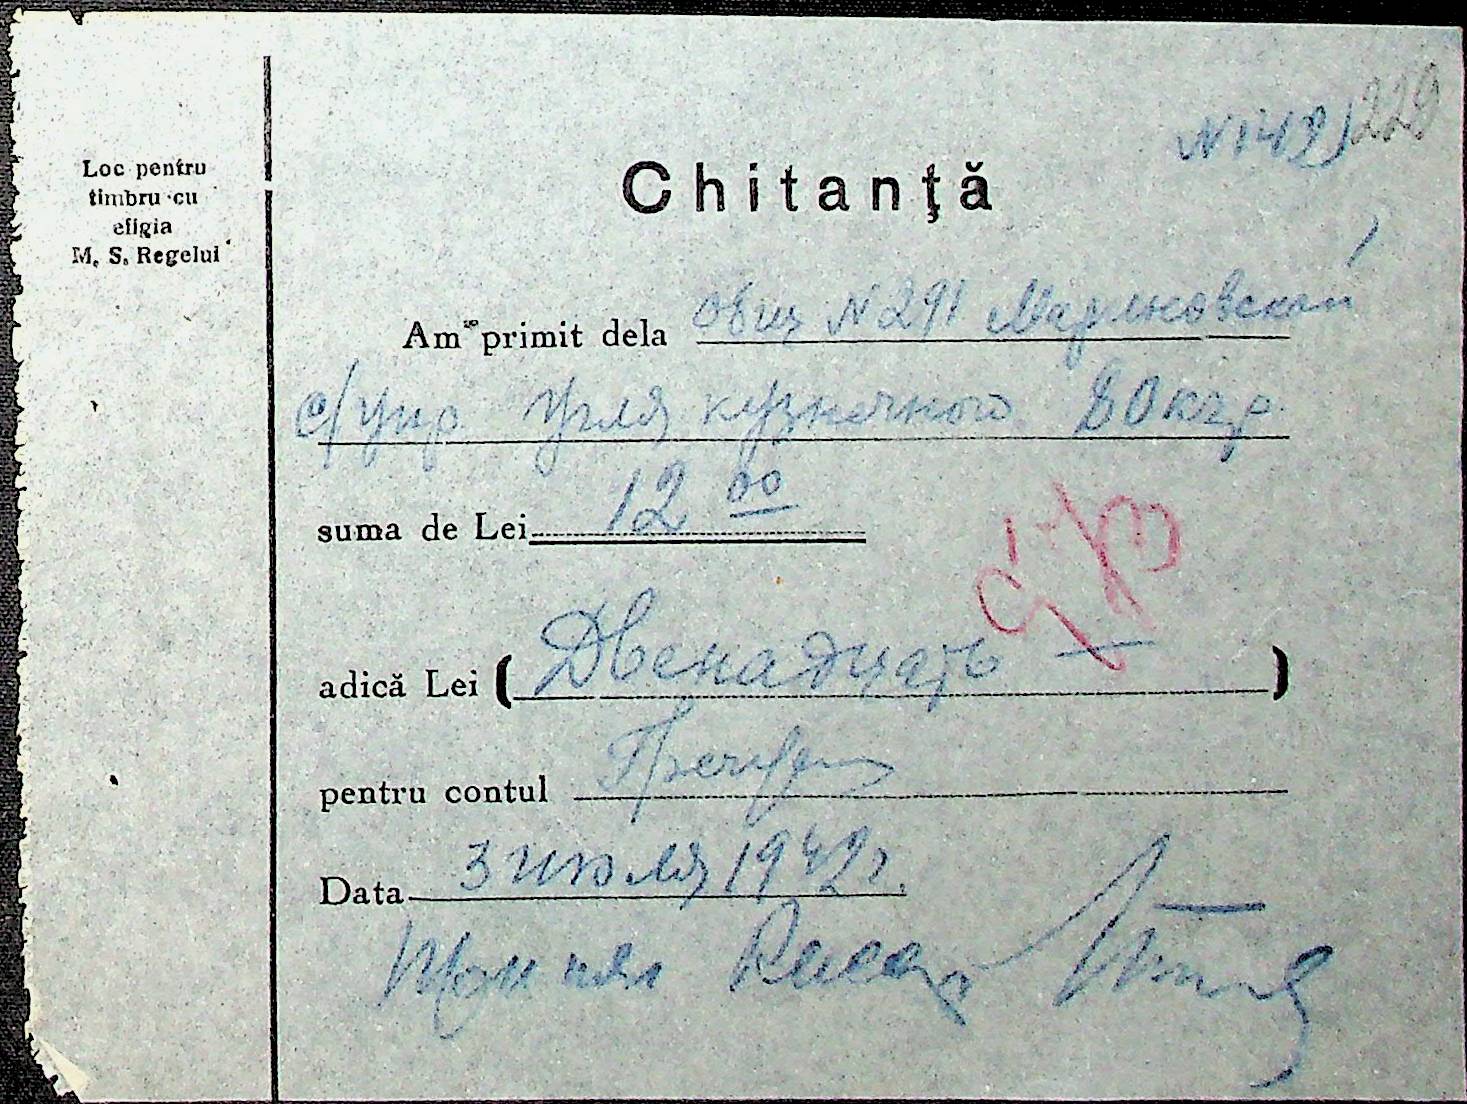 229
N 1491
Loc pentru
timbru cu
efigia
M. S. Regelui
Chitanţă
Am primit dela общ N 291 Марьновский
с/упр. Угля кузнечного 80 кгр.
suma de Lei 12 00
adică Lei (Двенадцать —)
pentru contul
Data 3 июля 1942 г.